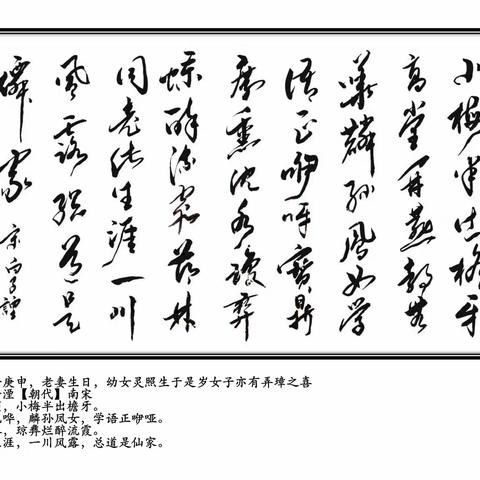 小梅半出檐牙
高堂开燕靜無
譁麟孙鳳女学
语正咿呀寶鼎
剩熏沈水瓊彝
烂醉流霞芗林
同老此生涯一川
風露總道是
僊家 宋 向子諲
庚申，老妻生日，幼女灵照生于是岁女子亦有弄璋之喜
湮【朝代】南宋
，小梅半出檐牙。
哗，麟孙凤女，学语正咿哑。
，琼彝烂醉流霞。
涯，一川风露，总道是仙家。